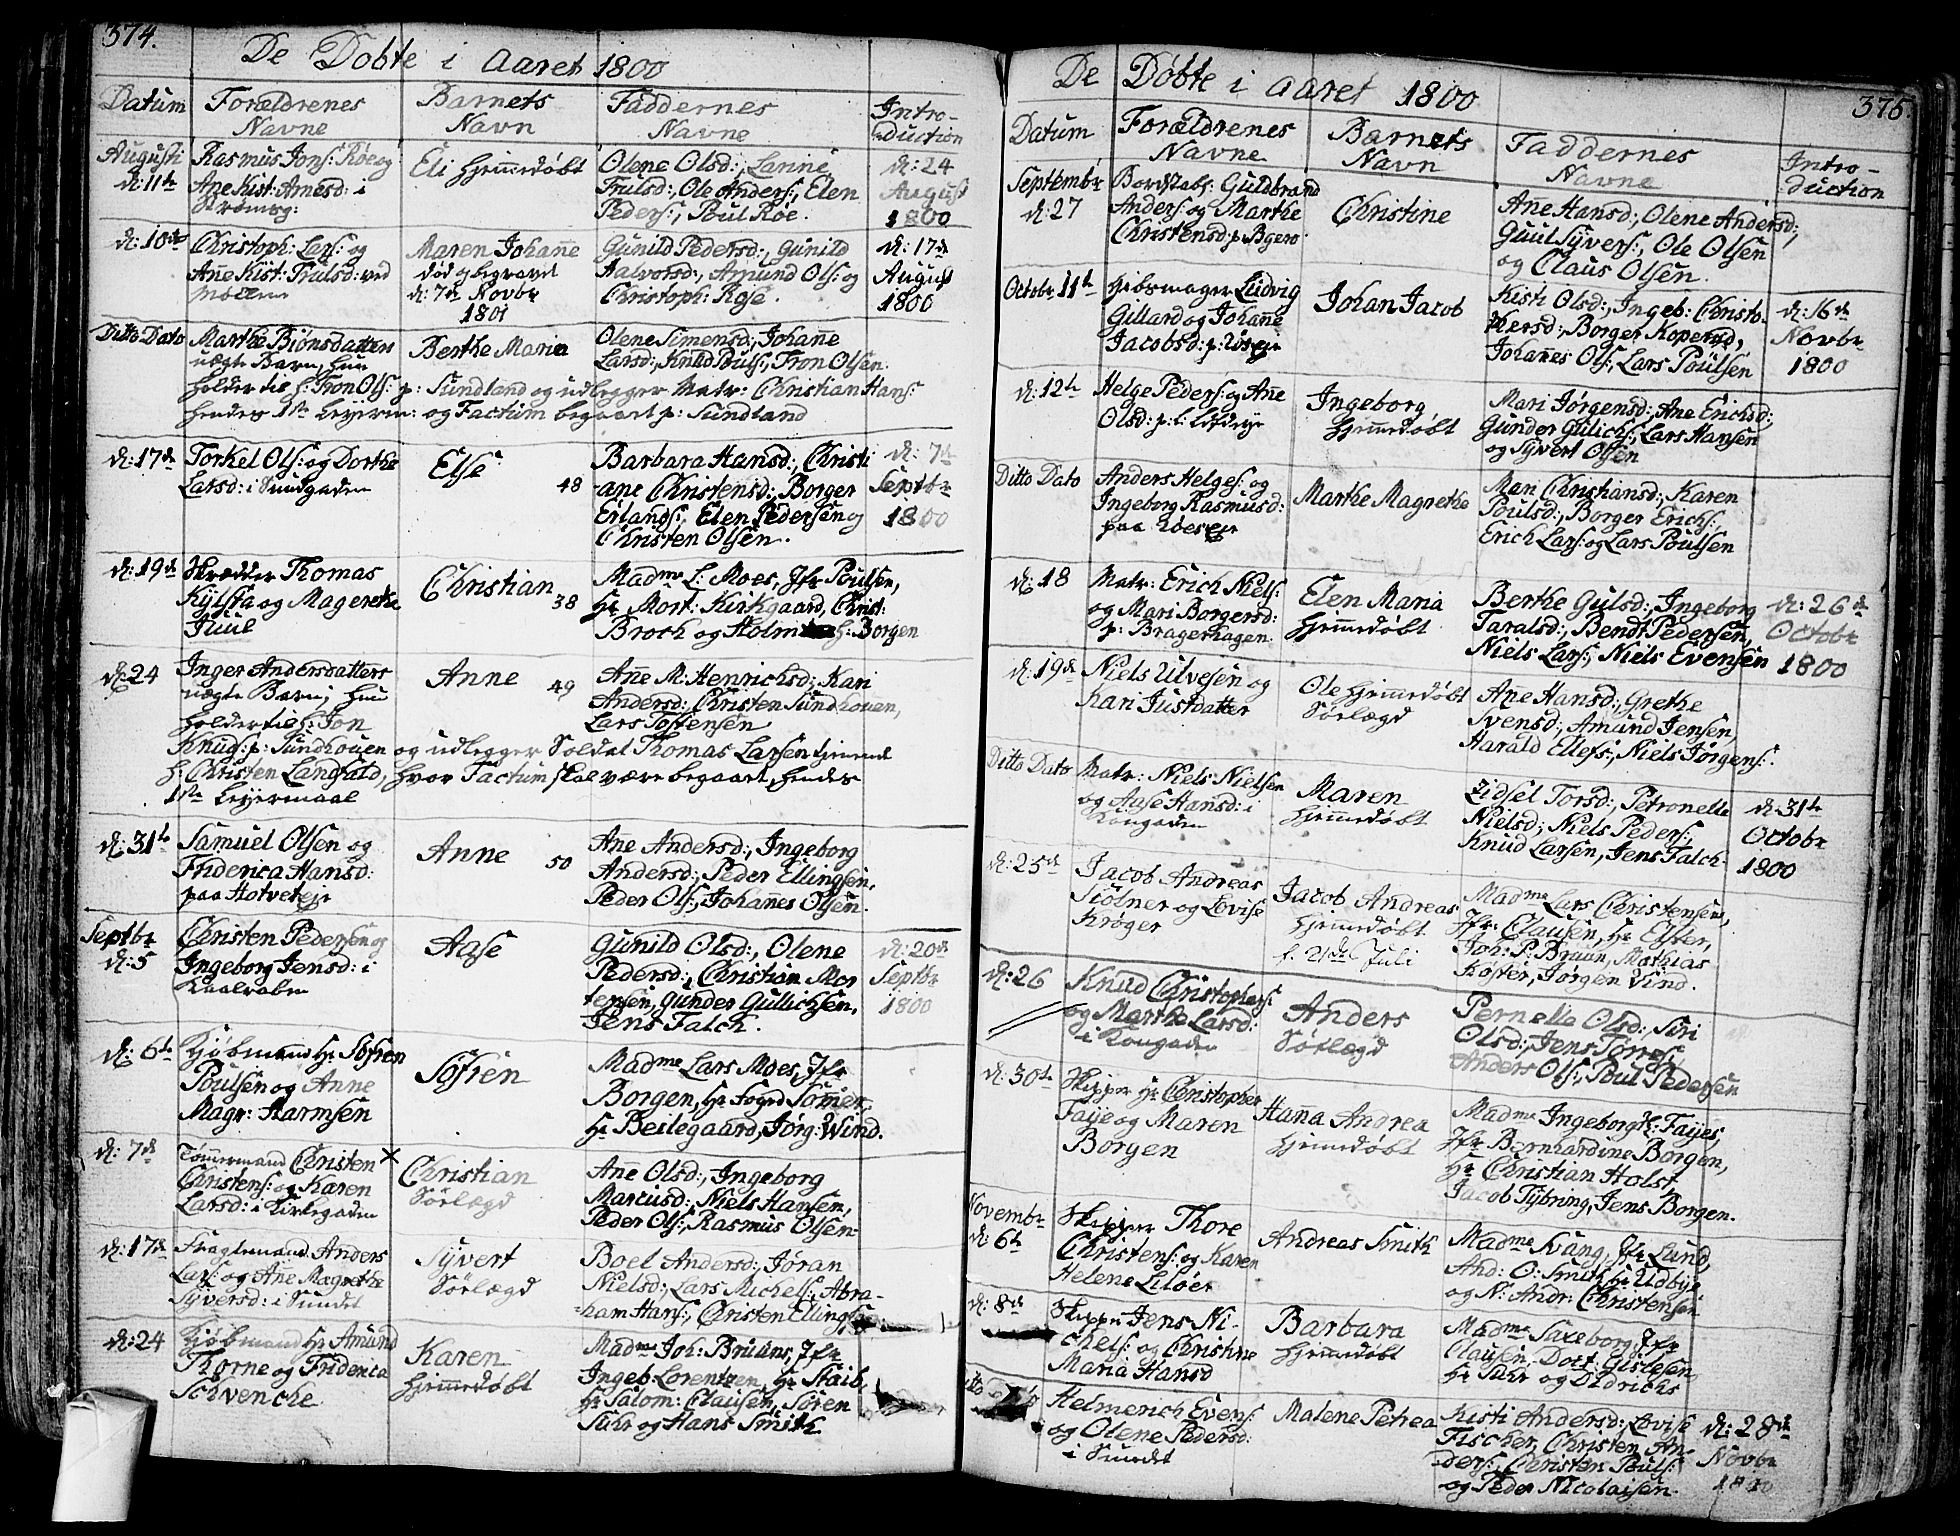 374.
De Døbte i Aaret 1800
Datum
Forældrenes
Navne
Barnets
Navn
Faddernes
Navne
Intro-
duction
Augusti
d: 11te
Rasmus Jons: Røe og
Ane Kist: Amesd: i
Strømsg:
Eli Hjemmedøbt
Olene Olsd:, Lanne
Trulsd:, Ole Anders:, Elen
Peders:, Poul Røe.
d: 24
August
1800
d: 10de
Christoph: Lars: og
Ane Kist: Trulsd: ved
Møllen
Maren Johan̄e
død og begravet
d: 7de Novbr
1801
Gunild Pedersd:, Gunild
Halvorsd:, Amund Ols: og
Christoph: Rose.
d: 17de
August
1800
Ditto Dato
Marthe Biönsdatters
uægte Barn, hun
holder til h: Tron Ols: p: Sundland og udlegger Matr: Christian Hans:
hendes 1ste Leyerm: og Factum begaaet p: Sundland
Berthe Maria
Olene Simensd:, Johan̄e
Larsd:, Knud Pouls:, Tron Olsen.
d: 17de
Torkel Ols: og Dorthe
Larsd: i Sundgaden
Else
48
Barbara Hansd:, Christi
ane Christensd:, Borger
Erlands:, Elen Pedersen og
Christen Olsen.
d: 7de
Septbr
1800
d: 19de
Skrædder Thomas
Kylsta og Magerethe
Juul
Christian
38
Madme L: Moes, Jfr Poulsen,
Hr Mort: Kirkgaard, Christ:
Broch og Holm h: Borgen
d: 24
Inger Andersdatters
uægte Barn, hun
holder til h: Jon
Knuds: p: Sundhouen og udlegger Soldat Thomas Larsen tienende
h: Christen Langfald, hvor Factum skal være begaaet, hendes
1ste Leyermaal
Anne
49
An̄e M: Henrichsd:, Kari
Andersd:, Christen Sundhouen,
Lars Tostensen
d: 31te
Samuel Olsen og
Friderica Hansd:
paa Hotvetejr
Anne
50
Ane Andersd:, Ingeborg
Andersd:, Peder Ellingsen,
Peder Ols:, Johan̄es Olsen.
Septbr
d: 5
Christen Pedersen og
Ingeborg Jensd: i
Aase
Gunild Olsd:, Olene
Pedersd:, Christian Mor
tensen, Gunder Gullichsen,
Jens Falch.
d: 20de
Septbr
1800
d: 6te
Kjøbmand Hr Søfren
Poulsen og Anne
Magr: Harmsen
Søfren
Madme Lars Moes, Jfr
Borgen, Hr Foged Sömer,
Hr Beilegaard, Jörg: Wind.
d: 7de
Tömmermand Christen
Christens: og Karen
Larsd: i Kirkegaden
Christian
Sørlægd
An̄e Olsd:, Ingeborg
Marcusd:, Niels Hansen,
Peder Ols:, Rasmus Olsen-
d: 17de
Fragtemand Anders
Lars: og An̄e Magrethe
Syversd: i Sundet
Syvert
Sørlægd
Boel Andersd:, Jøran
Nielsd:, Lars Michels:, Abra-
=ham Hans:, Christen Ellings:
d: 24
Kjøbmand Hr Amund
Thorne og Friderica
Schvencke
Karen
Hjemmedøbt
Madme Joh: Bruuns, Jfr
Ingeb: Lorentzen, Hr Staib,
Hr Salom: Clausen, Søren
Suhr og Hans Smith
375.
De Døbte i Aaret 1800
Datum
Forældrenes
Navne
Barnets
Navn
Faddernes
Navne
Intro-
-duction
Septembr
d: 27
Bordstabs: Guldbrand
Anders: og Marthe
Christensd: p: Bgerø
Christine
Ane Hansd:, Olene Andersd:,
Guul Syvers:, Ole Olsen
og Claus Olsen.
Octobr 11te
Gibsmager Ludvig
Gillard og Johan̄e
Jacobsd: p:
Johan Jacob
Kisti Olsd:, Ingeb: Christo-
phersd:, Borger Koperud,
Johan̄es Ols:, Lars Poulsen
d: 16de
Novbr
1800
d: 12te
Helge Peders: og Ane
Olsd: p:
Ingeborg
Hjemmedøbt
Mari Jørgensd:, Ane Erichsd:,
Gunder Gulichs:, Lars Hansen
og Syvert Olsen
Ditto Dato
Anders Helges: og
Ingeborg Rasmusd:
paa
Marthe Magrethe
Mari Christiansd:, Karen
Poulsd:, Borger Erichs:,
Erich Lars: og Lars Poulsen
d: 18
Matr: Erich Niels:
og Mari Borgersd:
p: Bragerhagen
Elen Maria
Hjemmedøbt
Berthe Gulsd:, Ingeborg
Taralsd:, Bendt Pedersen,
Niels Lars:, Niels Evensen
d: 26de
Octobr
1800
d: 19de
Niels Ulvesen og
Kari Justdatter
Ole Hjemmedøbt
Sørlægd
An̄e Hansd:, Grethe
Svensd:, Amund Jensen,
Harald Ellefs:, Niels Jørgens:
Ditto Dato
Matr: Niels Nielsen
og Aase Hansd: i
Kongaden
Maren
Hjemmedøbt
Zidsel Torsd:, Petronelle
Nielsd:, Niels Peders:,
Knud Larsen, Jens Falch
d: 31te
Octobr
1800
d: 25de
Jacob Andreas
Siölner og Lovise
Krøger
Jacob Andreas
Hjemmedøbt
f. 21de Juli
Madme Lars Christensen,
Jfr: Clausen, Hr Elster,
Joh: P: Braun, Mathias
Køster, Jørgen Vind.
d: 26
Knud Christophers:
og Marthe Larsd:
i Kongaden
Anders
Sørlægd
Pernelle Olsd:, Siri
Olsd:, Jens Torres:
Anders Ols:, Poul Pedersen
d: 30te
Skipper Hr Christopher
Faye og Maren
Borgen
Han̄a Andrea
Hjemmedøbt
Madme Ingeborg H: Fayes,
Jfr Bernhardine Borgen,
Hr Christian Holst
Jacob Tybring, Jens Borgen.
Novembr
d: 6te
Skipper Thore
Christens: og Karen
Helene Liløer
Andreas Smith
Madme Svang, Jfr Lund,
And: O: Smith, Hr Udbye
og N: Andr: Christensen
d: 8de
Skipper Jens Ni-
chels: og Christine
Maria Hansd
Barbara
Hjemmedøbt
Madme Saxeborg, Jfr
Clausen, Dort: Gislesen,
Hr Suhr og Didrichs
Helmerich Evens:
og Olene Pedersd:
i Sundet
Malene Petrea
Kisti Andersd:, Lovise
Fischer, Christen An-
-ders:, Christen Pouls:
og Peder Nicolaisen.
d: 28de
Novbr
1800